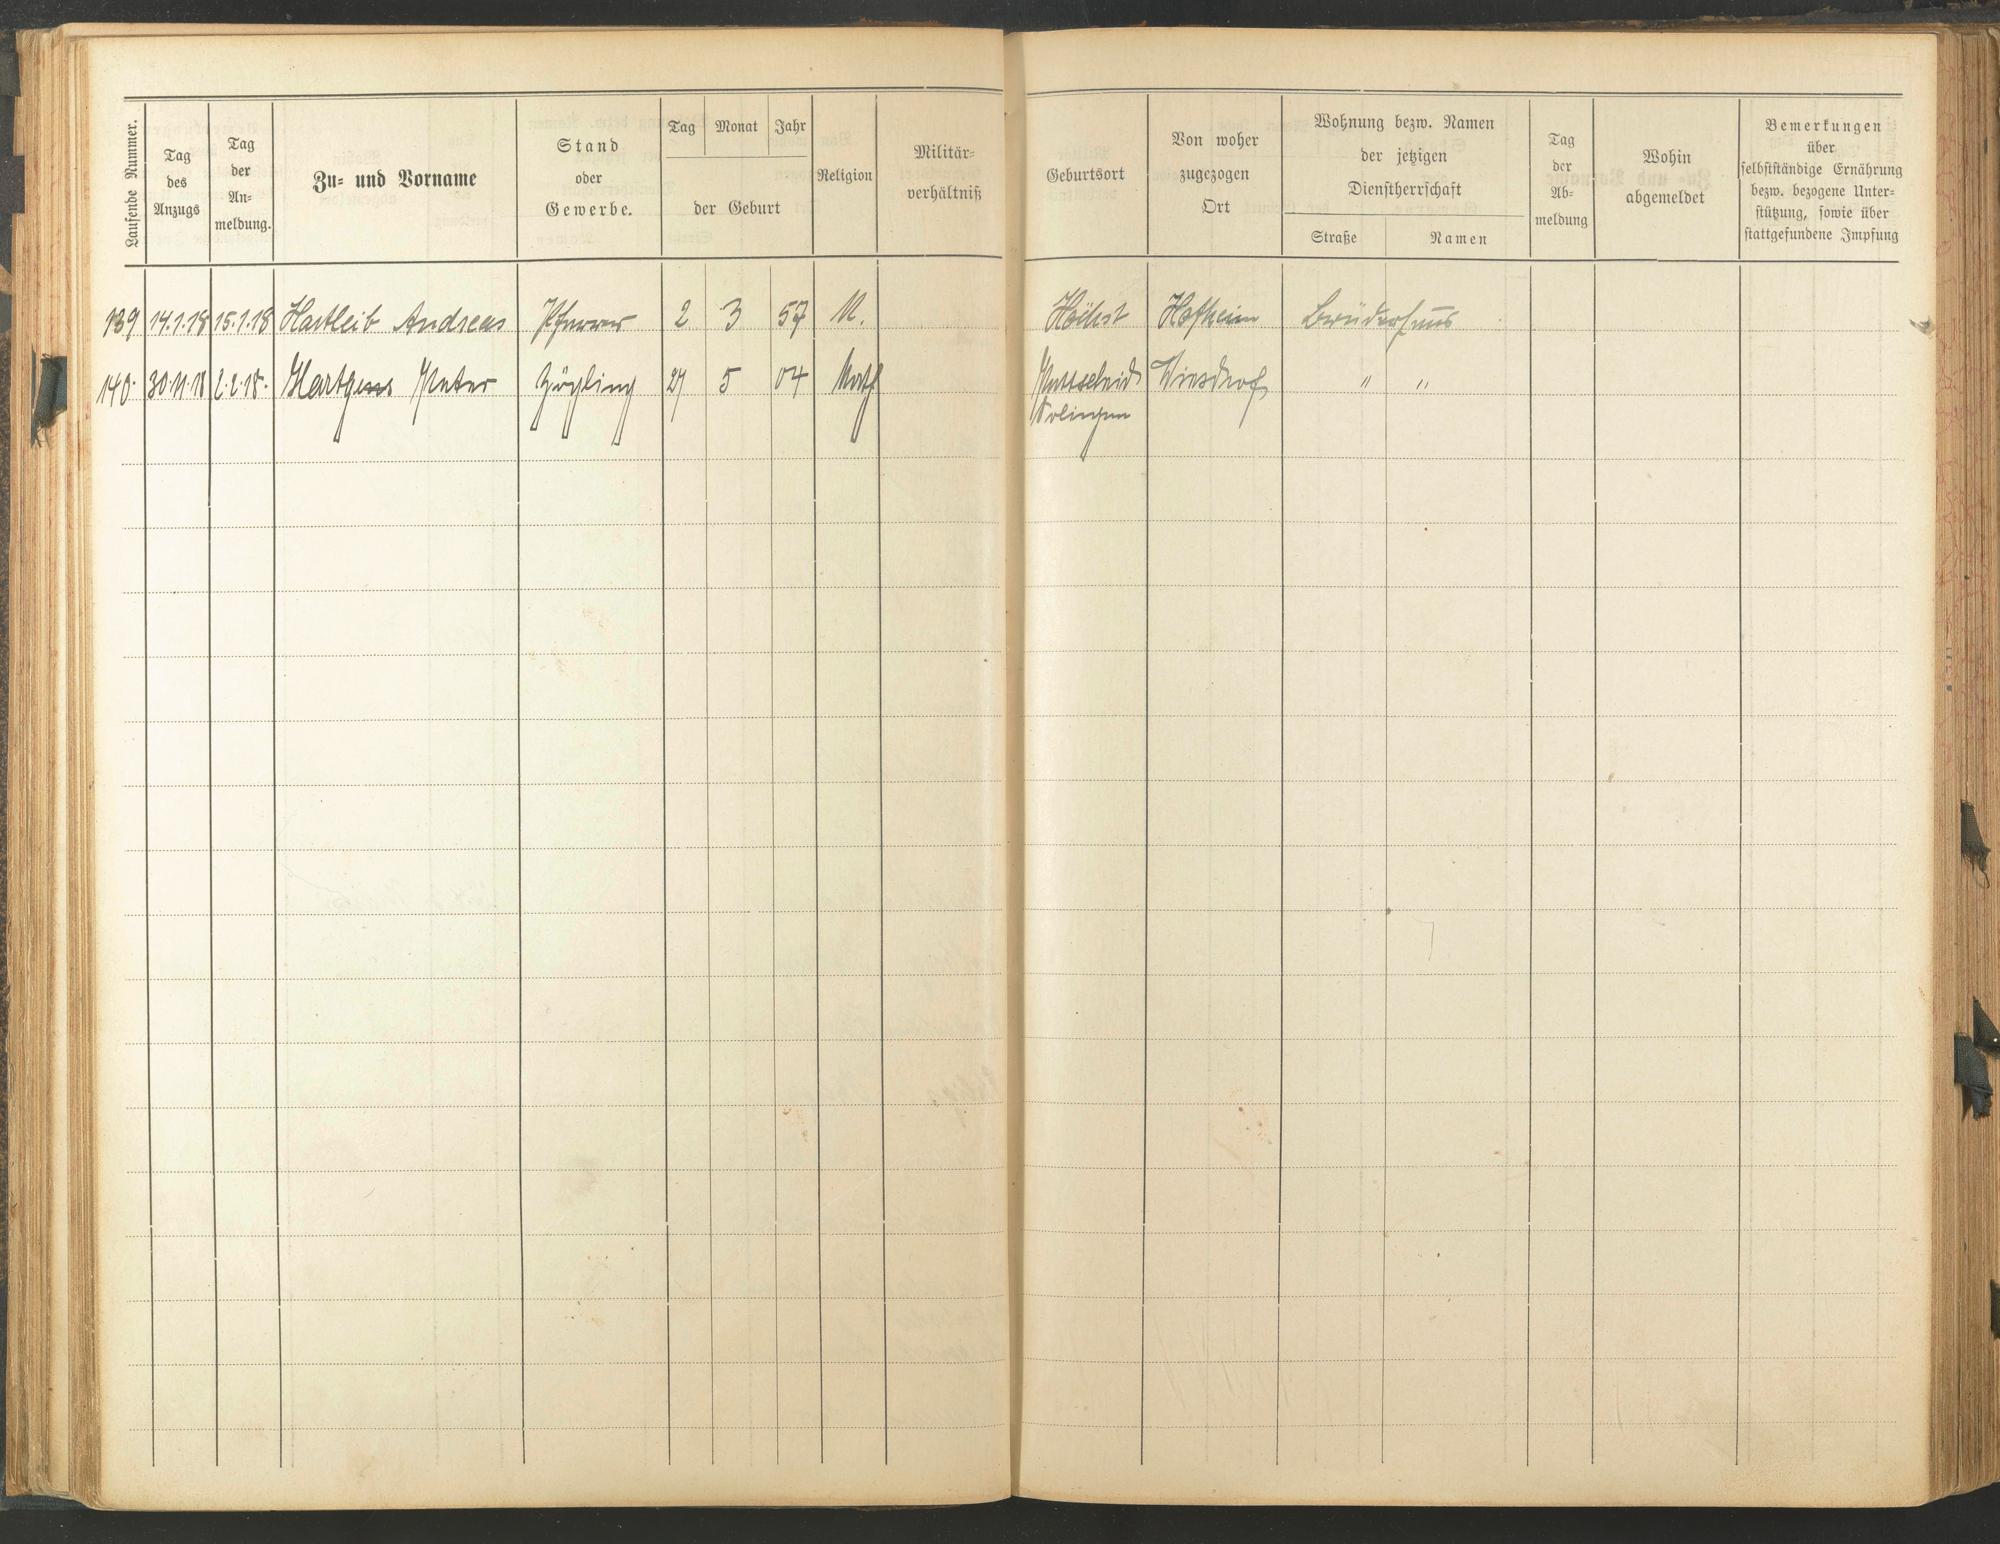 Laufende Nummer.
Tag des Anzugs
Tag der An-meldung.
Zu- und Vorname
Stand oder Gewerbe.
Tag Monat Jahr
der Geburt
Religion
Militär-verhältniß
Geburtsort
Von woher zugezogen Ort
Wohnung bezw. Namen
der jetzigen
Dienstherrschaft
Straße Namen
Tag der Ab-meldung
Wohin abgemeldet
Bemerkungen
über
selbstständige Ernährung
bezw. bezogene Unter-
stützung, sowie über
stattgefundene Impfung
139 14.1.18 15.1.18 Hartleib Andreas Pfarrer 2 3 57 K. Höchst Hofheim Brüderhaus
140. 30.11.18 2.2.18. Peter Zögling 27 5 04 Kath Wiesdorf " "